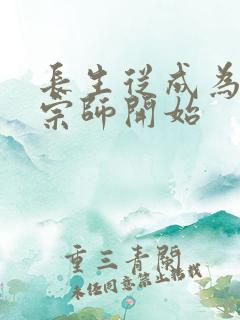 長生從成為
宗師開始
重三青閣
未經同意禁止轉載